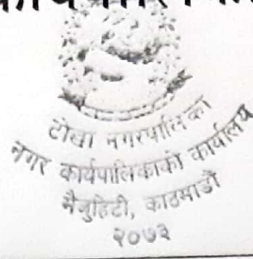 टोखा नगरपालिका
नगर कार्यपालिकाको कार्यालय
भैबुहिटी, काठमाडौं
२०७३